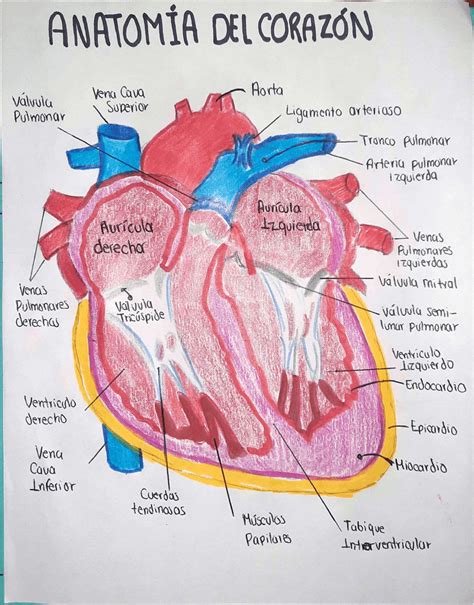 ANATOMÍA DEL CORAZÓN
Válvula
Pulmonar
Vena Cava
Superior
Aorta
Ligamento arterioso
Tronco Pulmonar
Arteria Pulmonar
izquierda
Aurícula
derecha
Aurícula
Izquierda
Venas
Pulmonares
izquierdas
Venas
Pulmonares
derechas
Válvula
Tricúspide
Válvula mitral
Válvula semi-
lunar pulmonar
Ventriculo
Izquierdo
Endocardio
Ventriculo
derecho
Epicardio
Vena
Cava
Inferior
Miocardio
Cuerdas
tendinosas
Músculos
Papilares
Tabique
Interventricular